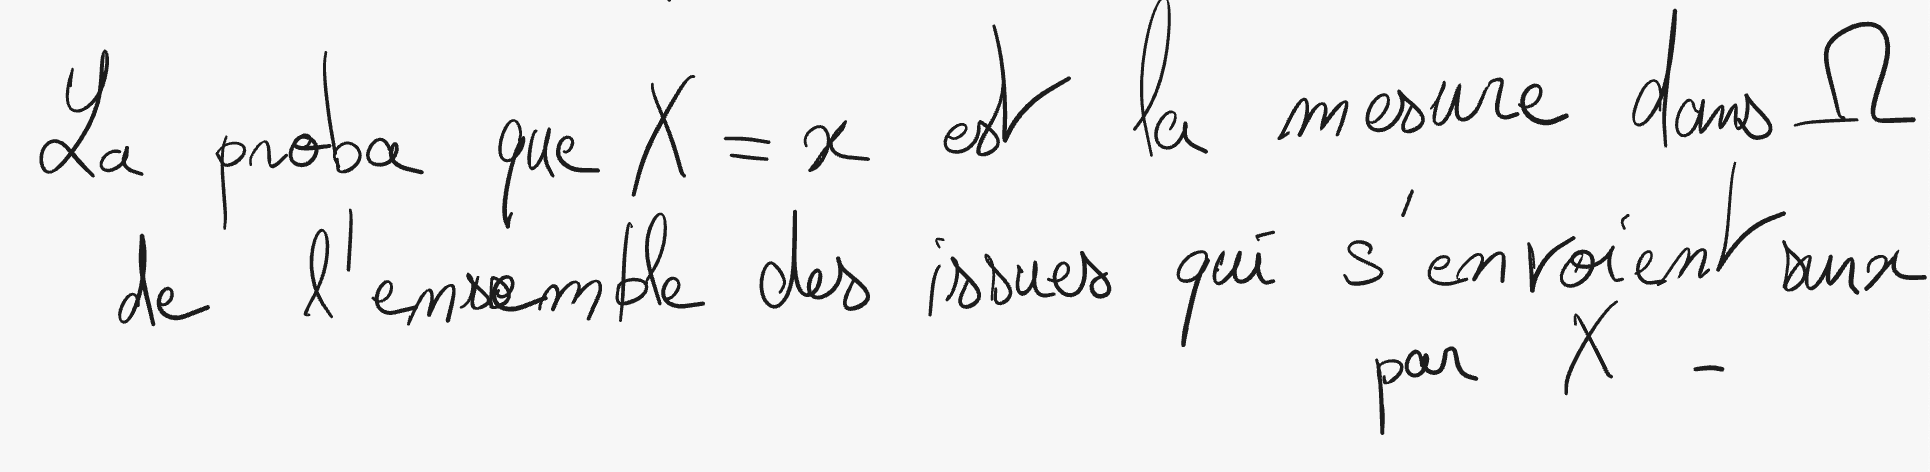 La proba que X = x est la mesure dans Ω
de l'ensemble des issues qui s'envoient sur x
par X -